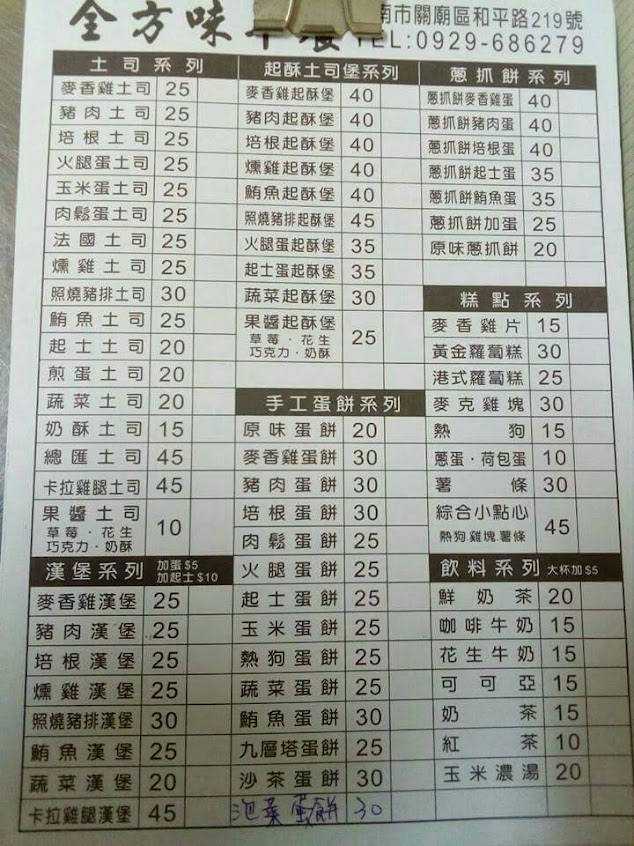 全方味早餐
南市關廟區和平路219號
TEL:0929-686279
土司系列
麥香雞土司 25
豬肉土司 25
培根土司 25
火腿蛋土司 25
玉米蛋土司 25
肉鬆蛋土司 25
法國土司 25
燻雞土司 25
照燒豬排土司 30
鮪魚土司 25
起士土司 20
煎蛋土司 20
蔬菜土司 20
奶酥土司 15
總匯土司 45
卡拉雞腿土司 45
果醬土司 10
草莓·花生
巧克力·奶酥
漢堡系列 加蛋$5
加起士$10
麥香雞漢堡 25
豬肉漢堡 25
培根漢堡 25
燻雞漢堡 25
照燒豬排漢堡 30
鮪魚漢堡 25
蔬菜漢堡 20
卡拉雞腿漢堡 45
起酥土司堡系列
麥香雞起酥堡 40
豬肉起酥堡 40
培根起酥堡 40
燻雞起酥堡 40
鮪魚起酥堡 40
照燒豬排起酥堡 45
火腿蛋起酥堡 35
起士蛋起酥堡 35
蔬菜起酥堡 30
果醬起酥堡 25
草莓·花生
巧克力·奶酥
手工蛋餅系列
原味蛋餅 20
麥香雞蛋餅 30
豬肉蛋餅 30
培根蛋餅 30
肉鬆蛋餅 25
火腿蛋餅 25
起士蛋餅 25
玉米蛋餅 25
熱狗蛋餅 25
蔬菜蛋餅 25
鮪魚蛋餅 30
九層塔蛋餅 25
沙茶蛋餅 30
泡菜蛋餅 30
蔥抓餅系列
蔥抓餅麥香雞蛋 40
蔥抓餅豬肉蛋 40
蔥抓餅培根蛋 40
蔥抓餅起士蛋 35
蔥抓餅鮪魚蛋 35
蔥抓餅加蛋 25
原味蔥抓餅 20
糕點系列
麥香雞片 15
黃金蘿蔔糕 30
港式蘿蔔糕 25
麥克雞塊 30
熱狗 15
蔥蛋·荷包蛋 10
薯條 30
綜合小點心 45
熱狗.雞塊.薯條
飲料系列 大杯加$5
鮮奶茶 20
咖啡牛奶 15
花生牛奶 15
可可亞 15
奶茶 15
紅茶 10
玉米濃湯 20